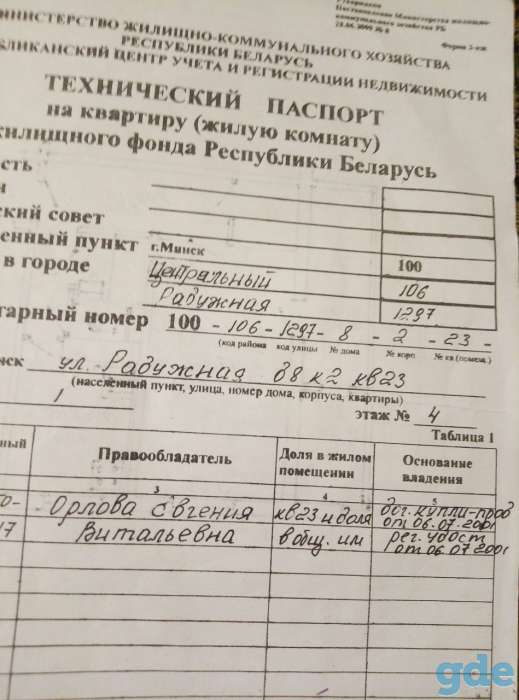 Утверждена
Постановлением Министерства жилищно-
коммунального хозяйства РБ
Форма 2-ки
МИНИСТЕРСТВО ЖИЛИЩНО-КОММУНАЛЬНОГО ХОЗЯЙСТВА
РЕСПУБЛИКИ БЕЛАРУСЬ
БЛИКАНСКИЙ ЦЕНТР УЧЕТА И РЕГИСТРАЦИИ НЕДВИЖИМОСТИ
ТЕХНИЧЕСКИЙ ПАСПОРТ
на квартиру (жилую комнату)
жилищного фонда Республики Беларусь
сть
н
ский совет
енный пункт г.Минск 100
в городе Центральный 106
Радужная 1297
тарный номер 100 - 106 - 1297 - 8 - 2 - 23 -
(код района код улицы № дома № корп № кв (помещ.)
нск ул. Радужная д8 к2 кв23
(населенный пункт, улица, номер дома, корпуса, квартиры)
1 этаж № 4
Таблица 1
ный Правообладатель Доля в жилом помещении Основание владения
3 4 5
0- Орлова Евгения кв23 и доля дог. купли-прод
от 06.07.2001
17 Витальевна в общ. им рег. удост
от 06.07.2001
gde